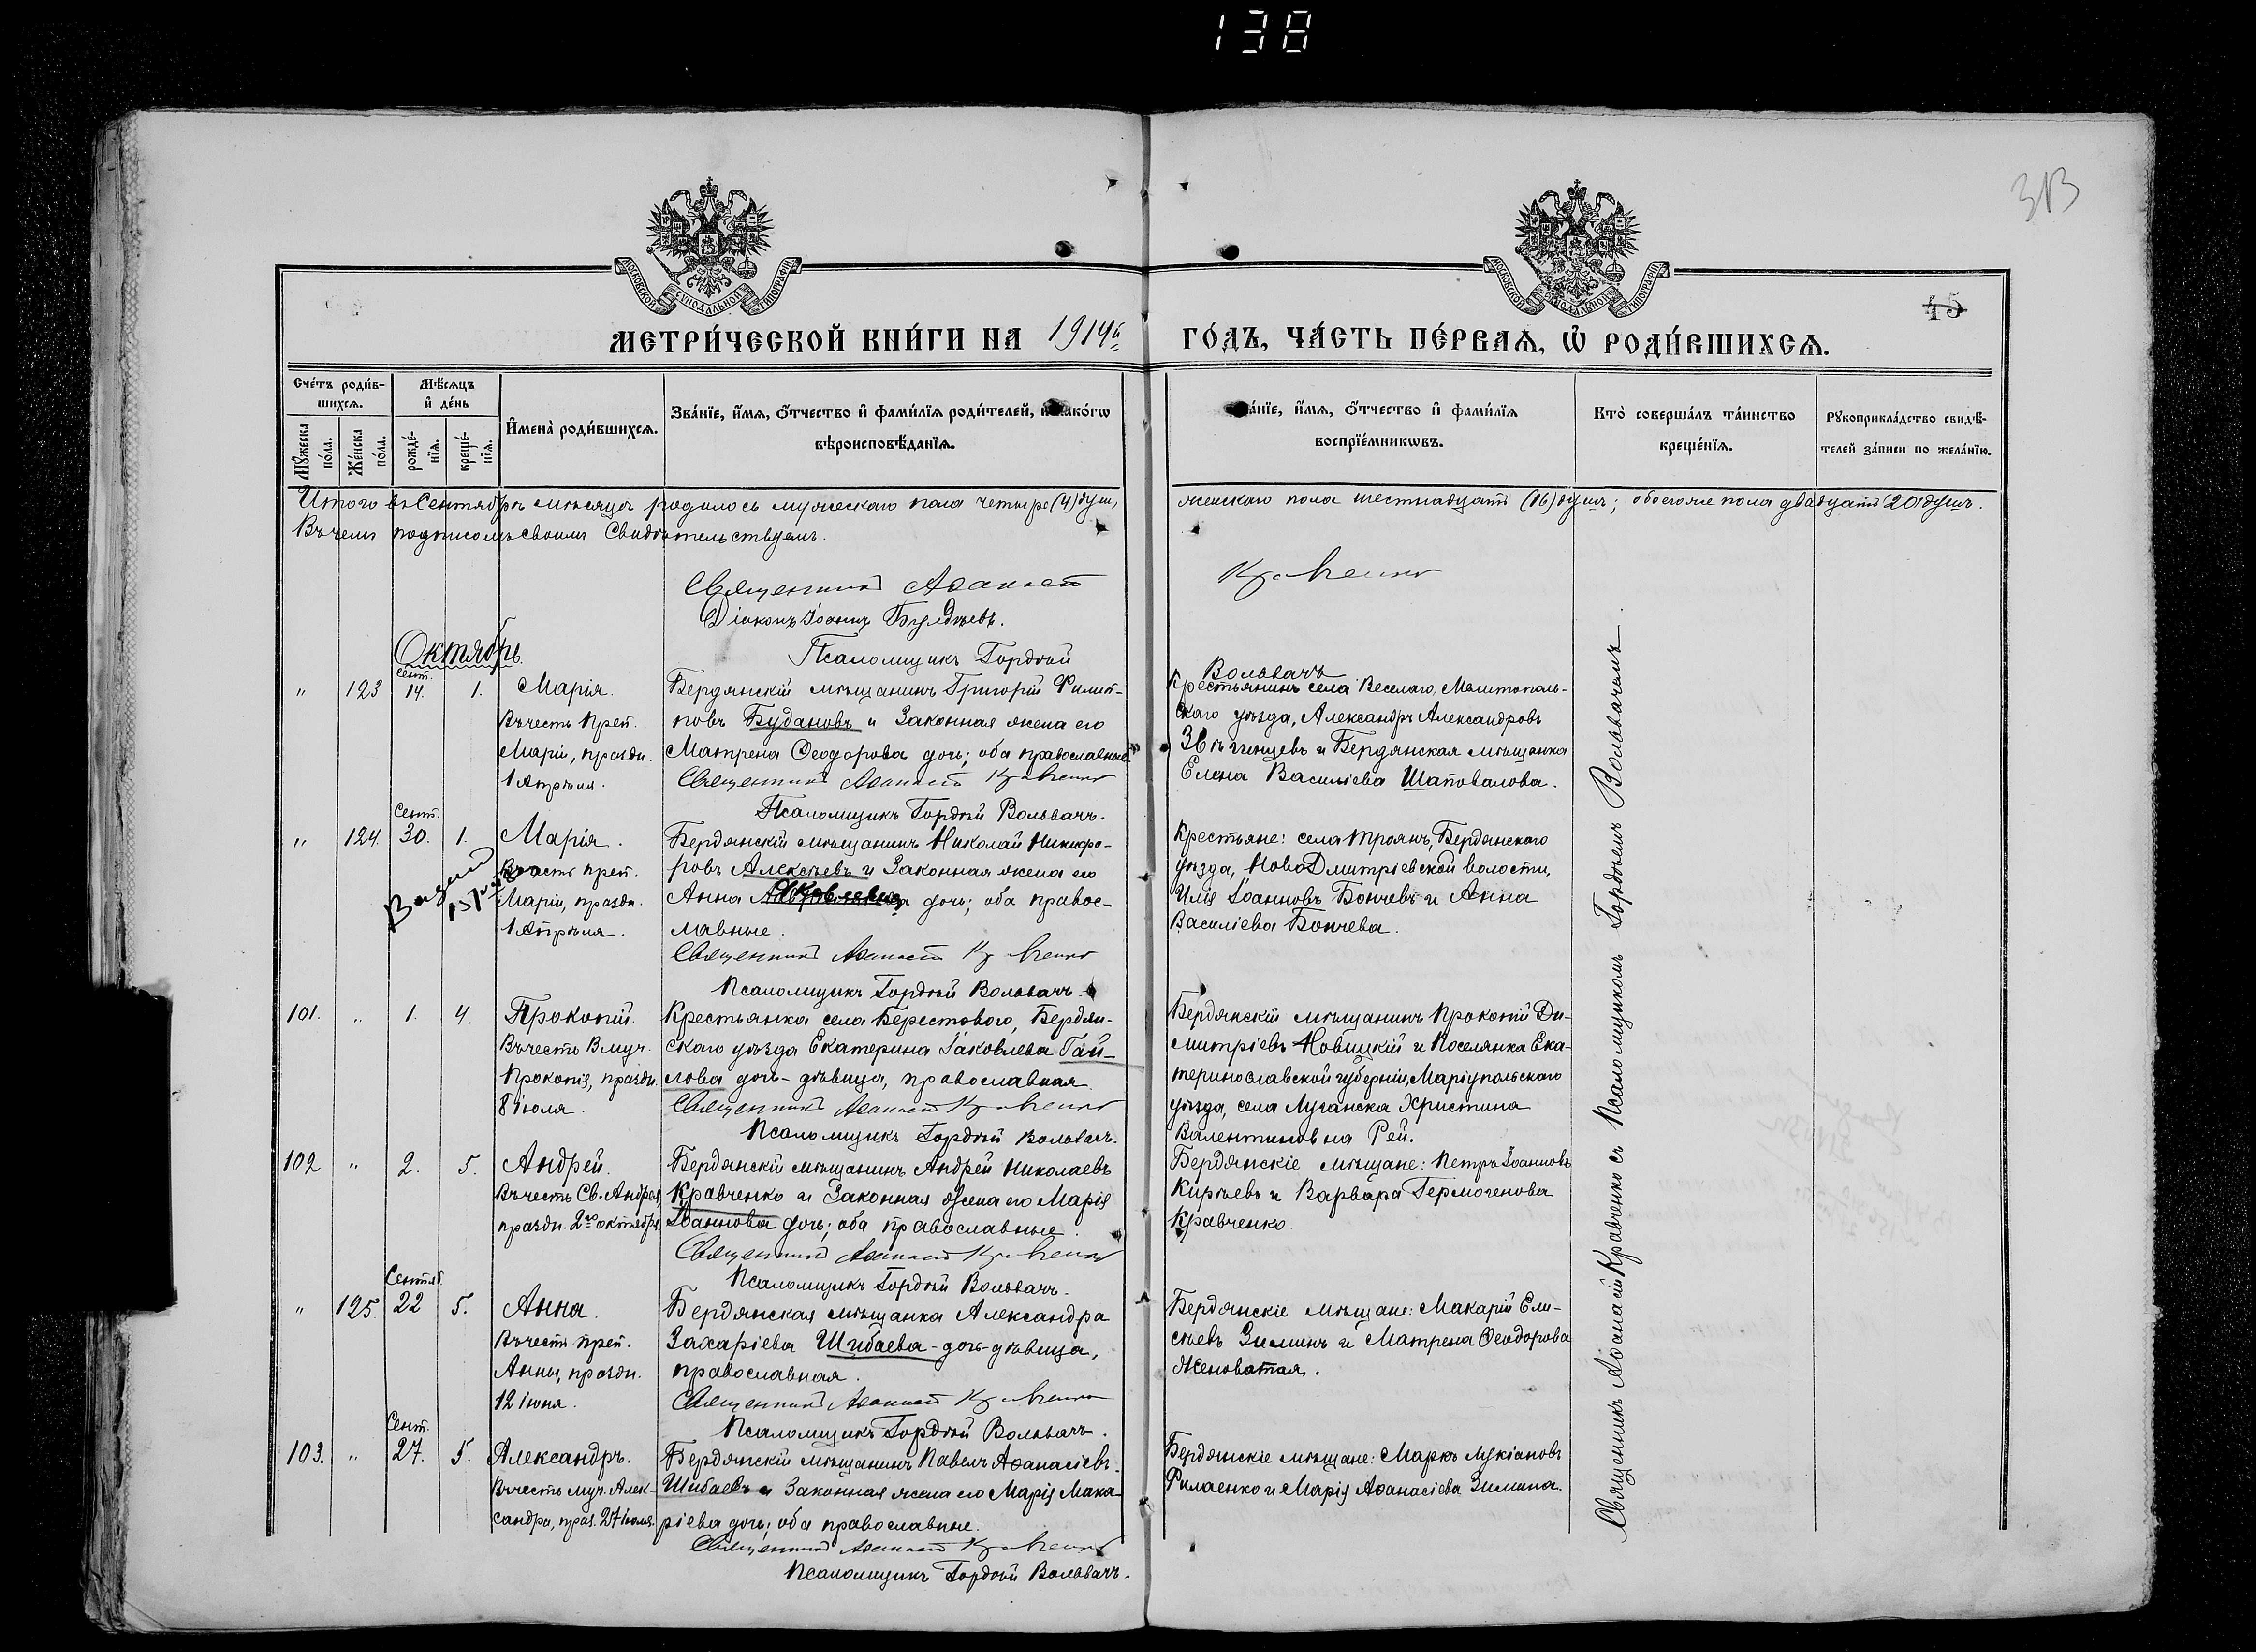 138
313
45
МОСКОВСКОЙ СѴНОДАЛЬНОЙ ТИПОГРАФІИ
МОСКОВСКОЙ СѴНОДАЛЬНОЙ ТИПОГРАФІИ
МЕТРИ́ЧЕСКОЙ КНИ́ГИ НА 1914й ГО́ДЪ, ЧА́СТЬ ПЕ́РВАѦ, Ѡ҆ РОДИ́ВШИХСѦ.
Сче́тъ роди́в-
шихсѧ.
Мꙋ́жеска по́ла.
Же́нска по́ла.
Мѣ́сѧцъ
и҆ де́нь
рожде́-
нїѧ.
креще́-
нїѧ.
И҆мена̀ роди́вшихсѧ.
Зва́нїе, и҆́мѧ, ѻ҆́тчество и҆ фами́лїѧ роди́телей, и҆ како́гѡ
вѣроисповѣ́данїѧ.
Зва́нїе, и҆́мѧ, ѻ҆́тчество и҆ фами́лїѧ
воспрїе́мникѡвъ.
Кто̀ соверша́лъ та́инство
креще́нїѧ.
Рꙋкоприкла́дство свидѣ́-
телей за́писи по жела́нїю.
Итого въ Сентябрѣ мѣсяцѣ родилось мужескаго пола четыре (4) душ, женскаго пола шестнадцать (16) душъ; обоего же пола двадцать 20 душъ.
Въ чемъ подписомъ своимъ Свидѣтельствуемъ.
Священникъ Аѳанасій Кравченко
Діаконъ Іоаннъ
Псаломщикъ Гордѣй Вольвачъ
Октябрь.
" 123 Сент. 14. 1. Марія.
Въ честь Преп.
Маріи, праздн.
1 Апрѣля.
Бердянскій мѣщанинъ Григорій Филип-
повъ Будановъ и Законная жена его
Матрена Ѳеодорова дочь; оба православные
Священникъ Аѳанасій Кравченко
Псаломщикъ Гордѣй Вольвачъ.
Крестьянинъ села Веселаго, Мелитополь-
скаго уѣзда, Александръ Александровъ
Звѣгинцевъ и Бердянская мѣщанка
Елена Василіева Шаповалова.
" 124. Сент. 30. 1. Марія.
Въ честь преп.
Маріи, праздн.
1 Апрѣля.
Бердянскій мѣщанинъ Николай Никифо-
ровъ Алексѣевъ и Законная жена его
Анна Яковлевна дочь; оба правос-
лавные.
Священникъ Аѳанасій Кравченко
Псаломщикъ Гордѣй Вольвачъ.
Крестьяне: села Троянъ, Бердянскаго
уѣзда, НовоДмитріевской волости,
Илія Іоанновъ Бончевъ и Анна
Василіева Бончева.
101. " 1. 4. Прокопій.
Въ честь Вмуч.
Прокопія, праздн.
8 Іюля.
Крестьянка села Берестового, Бердян-
скаго уѣзда Екатерина Іаковлева Гай-
лова дочь-дѣвица, православная
Священникъ Аѳанасій Кравченко
Псаломщикъ Гордѣй Вольвачъ.
Бердянскій мѣщанинъ Прокопій Ди-
митріевъ Новицкій и Поселянка Ека-
теринославской губерніи, Маріупольскаго
уѣзда, села Луганска Христина
Валентиновна Рей.
102 " 2. 5. Андрей.
Въ честь Св. Андрея,
праздн. 2го октября.
Бердянскій мѣщанинъ Андрей Николаевъ
Кравченко и Законная жена его Марія
Іоаннова дочь; оба православные.
Священникъ Аѳанасій Кравченко
Псаломщикъ Гордѣй Вольвачъ.
Бердянскіе мѣщане: Петръ Іоанновъ
Кирѣевъ и Варвара Гермогенова
Кравченко
" 125. Сентяб. 22 5. Анна.
Въ честь преп.
Анны, праздн.
12 іюня.
Бердянская мѣщанка Александра
Захаріева Шибаева - дочь-дѣвица,
православная.
Священникъ Аѳанасій Кравченко
Псаломщикъ Гордѣй Вольвачъ.
Бердянскіе мѣщане: Макарій Ели-
сѣевъ Зиминъ и Матрена Ѳеодорова
Женоватая.
103. " Сент. 27. 5. Александръ.
Въ честь муч. Алек-
сандра, праз. 27 Іюля.
Бердянскій мѣщанинъ Павелъ Аѳанасіевъ
Шибаевъ и Законная жена его Марія Мака-
ріева дочь; оба православные.
Священникъ Аѳанасій Кравченко
Псаломщикъ Гордѣй Вольвачъ.
Бердянскіе мѣщане: Маркъ Лукіановъ
Филаенко и Марія Аѳанасіева Зимина.
Священникъ Аѳанасій Кравченко съ Псаломщикомъ Гордѣемъ Вольвачемъ.